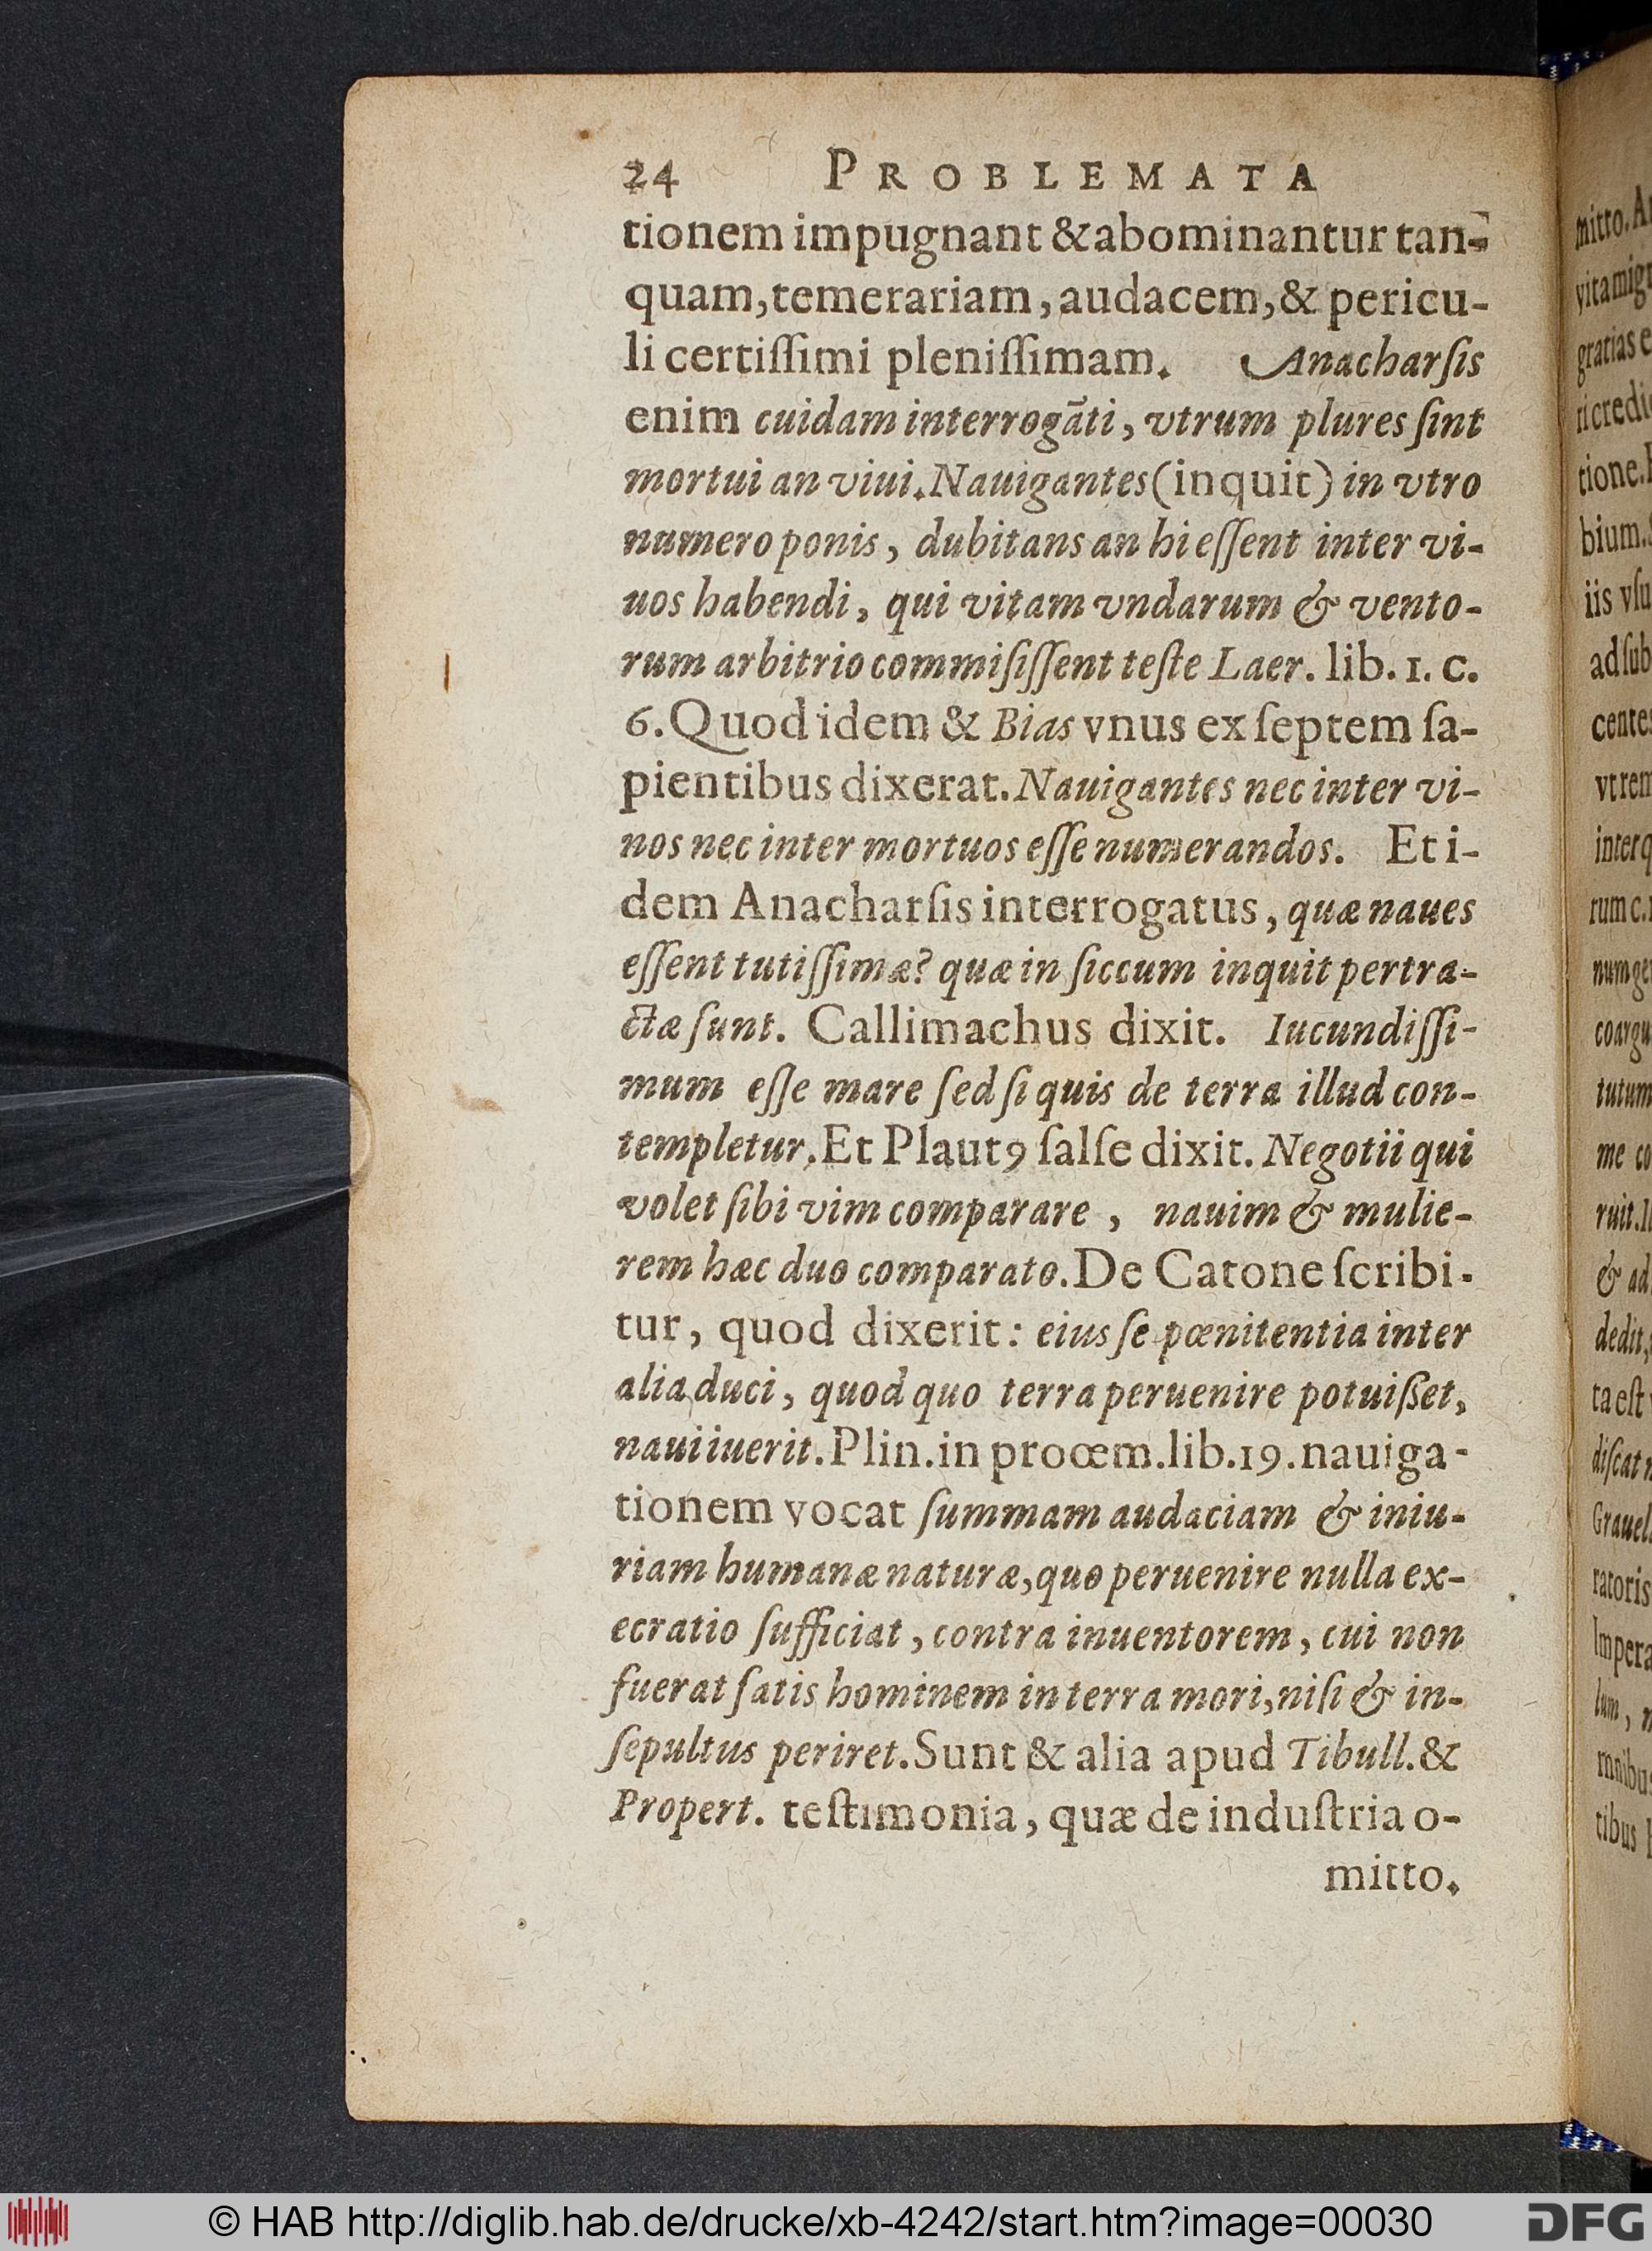 24 PROBLEMATA
tionem impugnant &abominantur tan-
quam,temerariam,audacem,& pericu-
li certiſſimi pleniſſimam. Anacharſis
enim cuidam interrogāti, vtrum plures ſint
mortui an viui.Nauigantes(inquit) in vtro
numero ponis, dubitans an hi eſſent inter vi-
uos habendi, qui vitam vndarum & vento-
rum arbitrio commiſiſſent teſte Laer. lib. 1. c.
6.Quod idem & Bias vnus ex ſeptem ſa-
pientibus dixerat.Nauigantes nec inter vi-
nos nec inter mortuos eſſe numerandos. Et i-
dem Anacharſis interrogatus, quæ naues
eſſent tutiſſimæ? quæ in ſiccum inquit pertra-
ctæ ſunt. Callimachus dixit. Iucundiſſi-
mum eſſe mare ſed ſi quis de terra illud con-
templetur.Et Plautꝯ ſalſe dixit. Negotii qui
volet ſibi vim comparare, nauim & mulie-
rem hæc duo comparato.De Catone ſcribi-
tur, quod dixerit: eius ſe pœnitentia inter
alia duci, quod quo terra peruenire potuiſset,
naui iuerit.Plin.in proœm.lib.19.nauiga-
tionem vocat ſummam audaciam & iniu-
riam humanæ naturæ,quo peruenire nulla ex-
ecratio ſufficiat, contra inuentorem, cui non
fuerat ſatis hominem in terra mori,niſi & in-
ſepultus periret.Sunt & alia apud Tibull.&
Propert. teſtimonia, quæ de induſtria o-
mitto.
© HAB http://diglib.hab.de/drucke/xb-4242/start.htm?image=00030
DFG